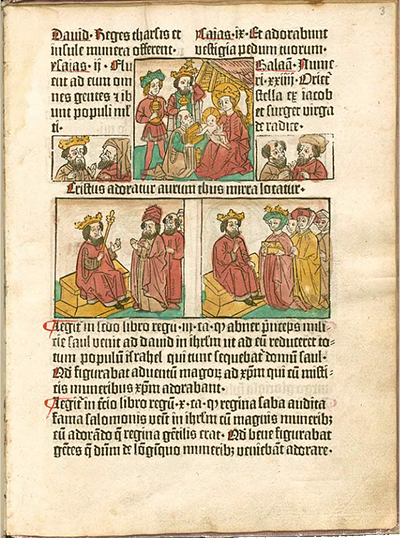 3
Dauid· Reges tharsis et
insule munera offerent·
Ysaias· ij· Flu
ent ad eum om
nes gentes & ib
unt populi mul
ti·
Ysaias· ix· Et adorabunt
vestigia pedum tuorum·
Balaā· Nume
ri· xxiiij· Orieť
stella ex iacob
et surget virga
de radice·
Cristus adoratur aurum thus mirra locatur·
Legiť in scdo libro regū· iij· ca· ꝙ abner prīceps mili-
cie saul venit ad dauid in ihrlm̄ ut ad eū reduceret to-
tum populū israhel qui tunc sequebať domū saul·
Nd̄ figurabat aduentū magoꝝ ad xp̄m qui eū misti-
cis muneribus xp̄m adorabant·
Legiť in t̄cio libro regū· x· ca· ꝙ regina saba audita
fama salomonis venit in ihrlm̄ cū magnis muneribꝫ
eū adorādo q̄ regina gētilis erat· Nd̄ bene figurabat
gētes q̄ dn̄m de lōgīquo muneribꝫ veniebant adorare·